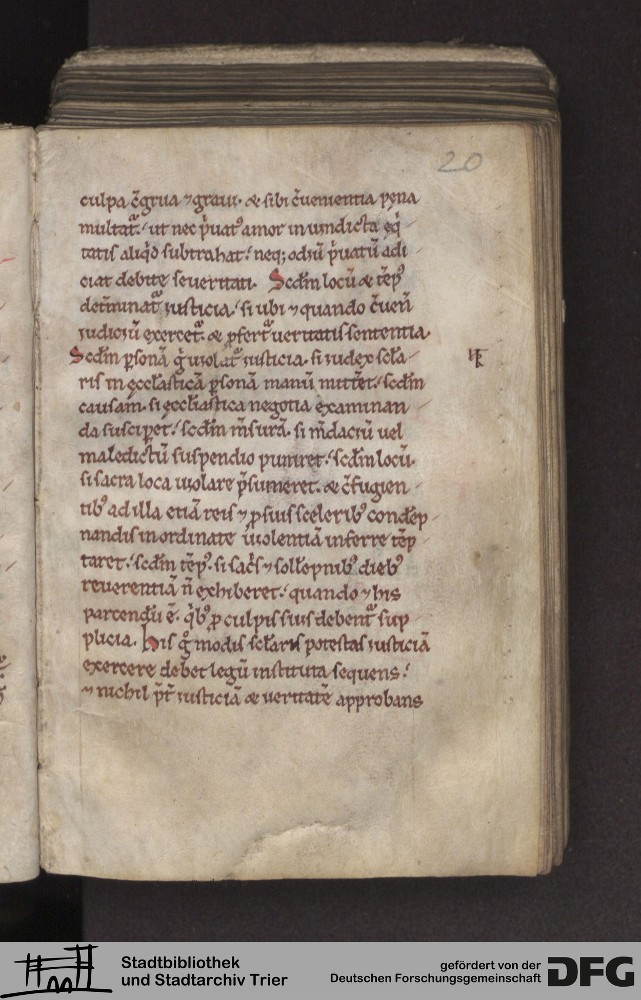 20
culpa c̄grua ⁊ graui. & sibi c̄uenientia pęna
multat̄. ut nec p̄uat᷒ amor in uindicta eq̄
tatis aliq̄d subtrahat. neq; odiū p̄uatū adi
ciat debitę seueritati. Scd̄m locū & tēp᷒
det̄minat̄ iusticia. si ubi ⁊ quando c̄uen̄
iudiciū exercet̄. & p̄fert̄ ueritatis sententia.
Scd̄m p̄sonā q̄ uiolat̄ iusticia. si iudex scl̄a
ris in ęccl̄asticā p̄sonā manū mitt̄et. scd̄m
causam. si ęccl̄iastica negotia examinan
da susciꝑet. scd̄m m̄surā. si m̄daciū uel
maledictū suspendio puniret. scd̄m locū.
si sacra loca uiolare p̄sumeret. & c̄fugien
tib᷒ ad illa etiā reis ⁊ ꝓ suis scelerib᷒ condēp
nandis inordinate uiolentiā inferre tēp
taret. scd̄m tēp᷒. si sac̄s ⁊ soll̄epnib᷒ dieb᷒
reuerentiā n̄ exhiberet. quando ⁊ his
parcendū ē. q̄b᷒ ꝓ culpis suis debent̄ sup
plicia. His g̊ modis scl̄aris potestas iusticiā
exercere debet legū instituta sequens.
⁊ nichil p̄t̄ iusticiā & ueritatē approbans
Stadtbibliothek
und Stadtarchiv Trier
gefördert von der
Deutschen Forschungsgemeinschaft
DFG